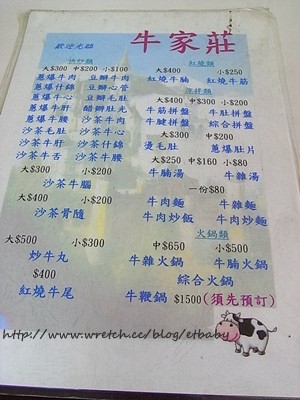 歡迎光臨
牛家莊
快炒類
大$300 中$200 小$100
蔥爆牛肉 豆瓣牛肉
蔥爆什錦 豆瓣心管
蔥爆牛心 豆瓣毛肚
蔥爆牛肚 醋爆毛肚
蔥爆牛肝 醋爆光肚
蔥爆牛腰 沙茶牛肉
沙茶毛肚 沙茶牛心
沙茶牛肚 沙茶什錦
沙茶牛肝 沙茶心管
沙茶牛舌 沙茶牛腰
大$300 小$200
沙茶牛腦
大$400 小$200
沙茶骨隨
大$500 小$300
炒牛丸
$400
紅燒牛尾
紅燒類
大$400 小$250
紅燒牛腩 紅燒牛筋
涼拌類
大$400 中$300 小$200
牛筋拼盤 牛肚拼盤
牛腱拼盤 綜合拼盤
$300 中$200
燙毛肚 蔥爆肚片
大$250 中$160 小$80
牛腩湯 牛雜湯
一份$80
牛肉麵 牛雜麵
牛肉炒飯 牛肉炒麵
火鍋類
中$650 小$500
牛雜火鍋 牛腩火鍋
綜合火鍋
牛鞭鍋 $1500(須先預訂)
http://www.wretch.cc/blog/etbaby